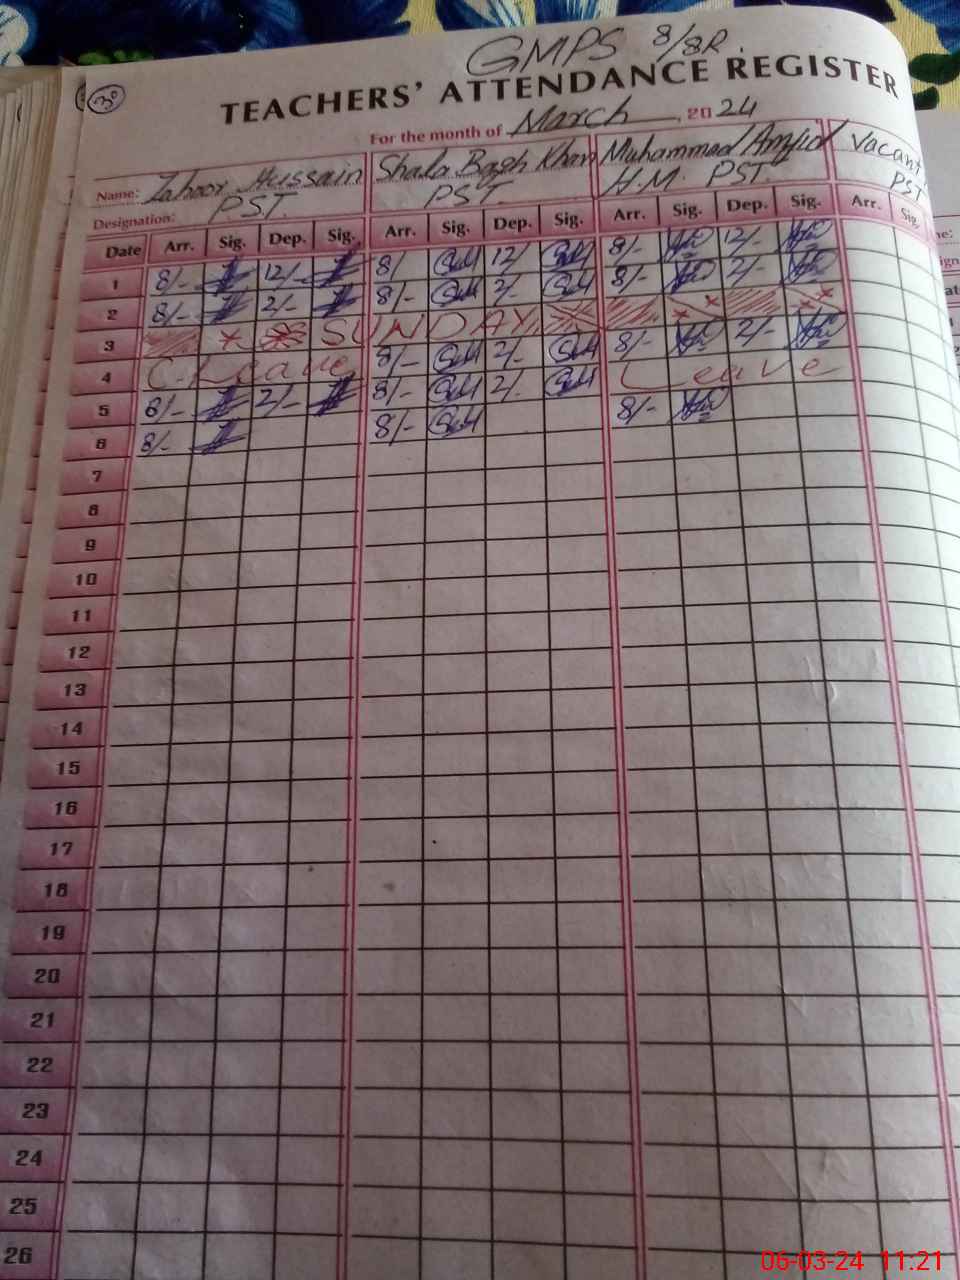 GMPS 8/8R.
30
TEACHERS' ATTENDANCE REGISTER
For the month of March, 2024
Name: Zahoor Hussain Shala Bagh Khan Muhammad Amjid Vacant
Designation: P.S.T. PST. H.M. PST. PST
Date Arr. Sig. Dep. Sig. Arr. Sig. Dep. Sig. Arr. Sig. Dep. Sig. Arr. Sig.
1 8/- 12/- 8/ 12/ 8/- 12/-
2 8/- 2/- 8/- 2/- 8/- 2/-
3 SUNDAY
4 C. Leave 8/- 2/- 8/- 2/-
5 8/- 2/- 8/- 2/- Leave
6 8/- 8/- 8/-
7
8
9
10
11
12
13
14
15
16
17
18
19
20
21
22
23
24
25
26
06-03-24 11:21